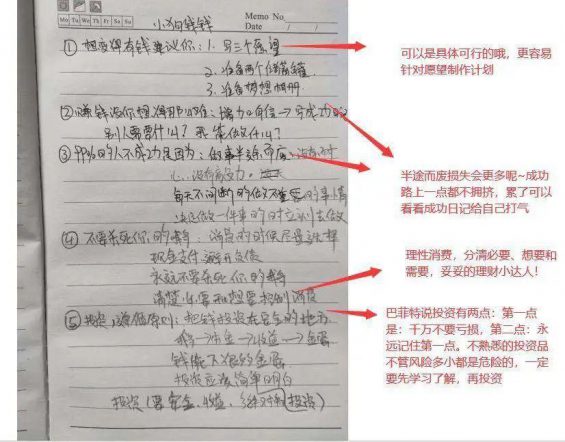 Memo No.
Mo Tu We Th Fr Sa Su
Date / /
小狗钱钱
① 想变得有钱建议你:1. 写三个愿望
2. 准备两个储蓄罐
3. 准备梦想相册
② 赚钱没你想得那么难:增加自信→写成功日
别人需要什么?我能做什么?
③ 99%的人不成功是因为:做事半途而废
每天不间断的做
决定做一件事的时 立刻去做
④ 不要杀死你的鹅:消费的时候尽量选择
现金支付
永远不要杀死你的鹅
清楚必要和想要
⑤ 投资 原则:把钱投资在安全的地方
鹅→ →收益→金蛋
钱能下很多金蛋
投资应该简单明白
投资(
可以是具体可行的哦，更容易
针对愿望制作计划
半途而废损失会更多呢~成功
路上一点都不拥挤，累了可以
看看成功日记给自己打气
理性消费，分清必要、想要和
需要，妥妥的理财小达人！
巴菲特说投资有两点：第一点
是：千万不要亏损，第二点：永
远记住第一点。不熟悉的投资品
不管风险多小都是危险的，一定
要先学习了解，再投资